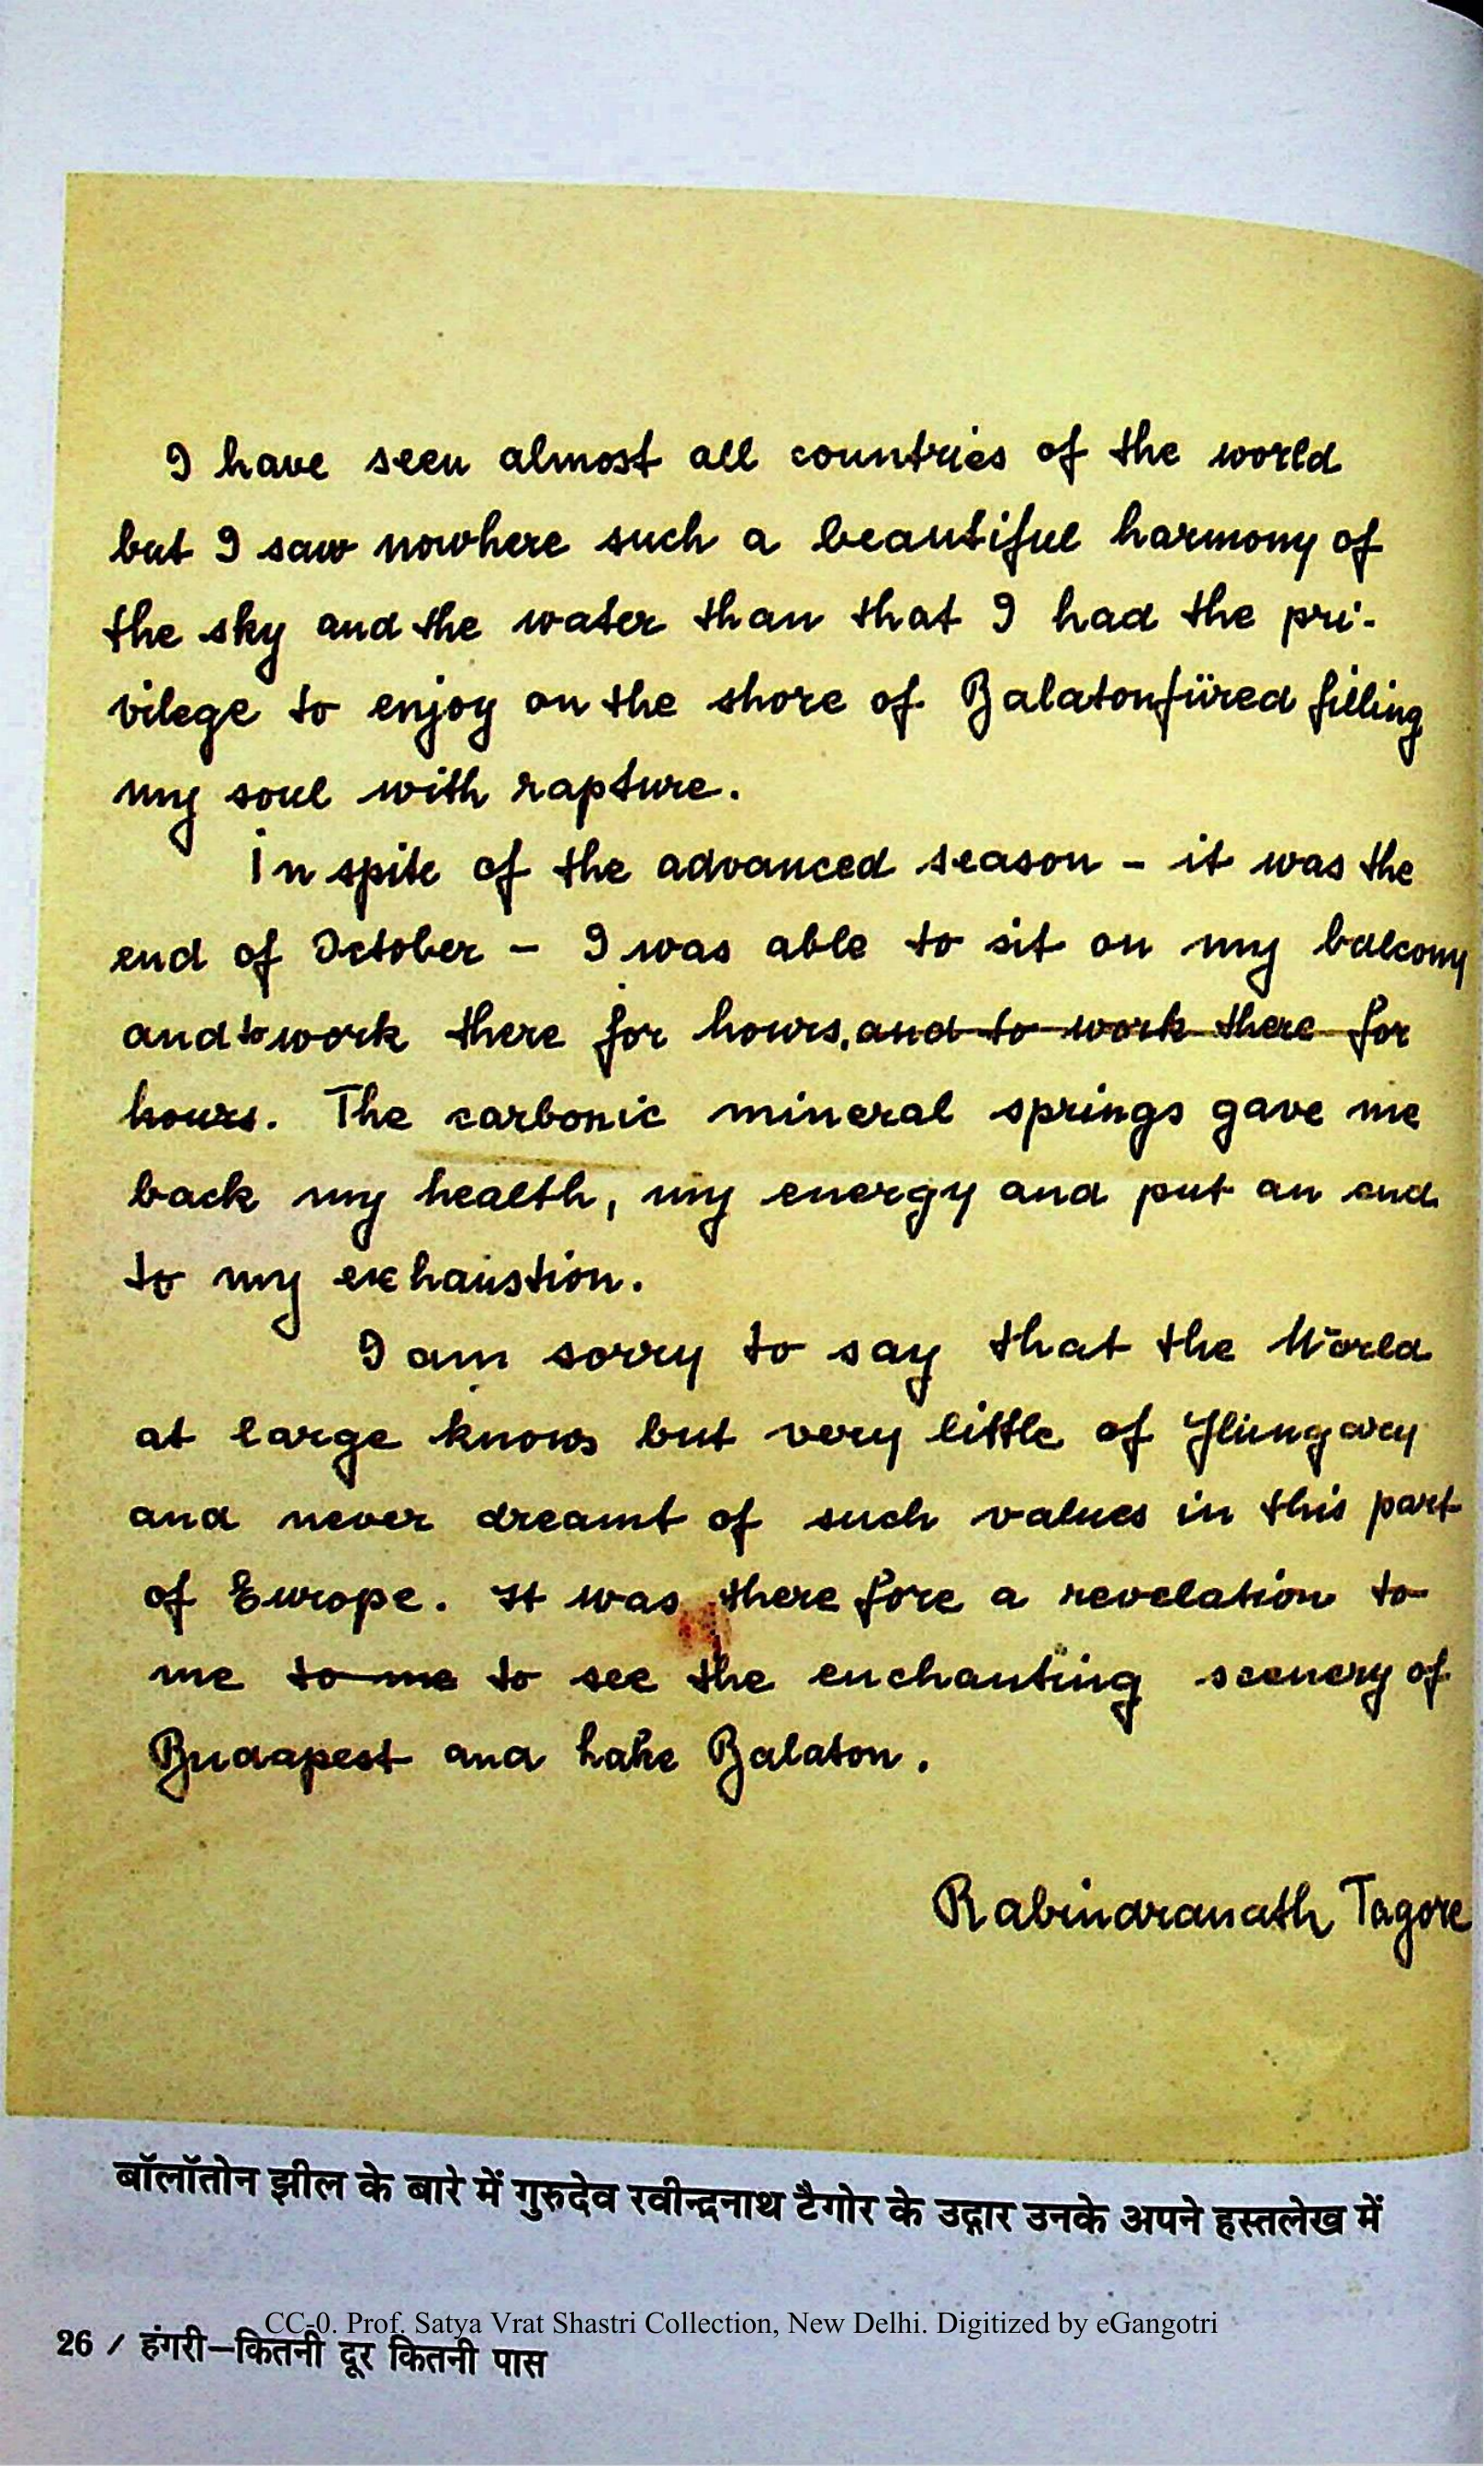 I have seen almost all countries of the world
but I saw nowhere such a beautiful harmony of
the sky and the water than that I had the pri-
vilege to enjoy on the shore of Balatonfüred filling
my soul with rapture.
In spite of the advanced season - it was the
end of October - I was able to sit on my balcony
and to work there for hours, and to work there for
hours. The carbonic mineral springs gave me
back my health, my energy and put an end
to my exhaustion.
I am sorry to say that the World
at large knows but very little of Hungary
and never dreamt of such values in this part
of Europe. It was therefore a revelation to
me to me to see the enchanting scenery of
Budapest and Lake Balaton.
Rabindranath Tagore
बॉलॉतोन झील के बारे में गुरुदेव रवीन्द्रनाथ टैगोर के उद्गार उनके अपने हस्तलेख में
CC-0. Prof. Satya Vrat Shastri Collection, New Delhi. Digitized by eGangotri
26 / हंगरी–कितनी दूर कितनी पास